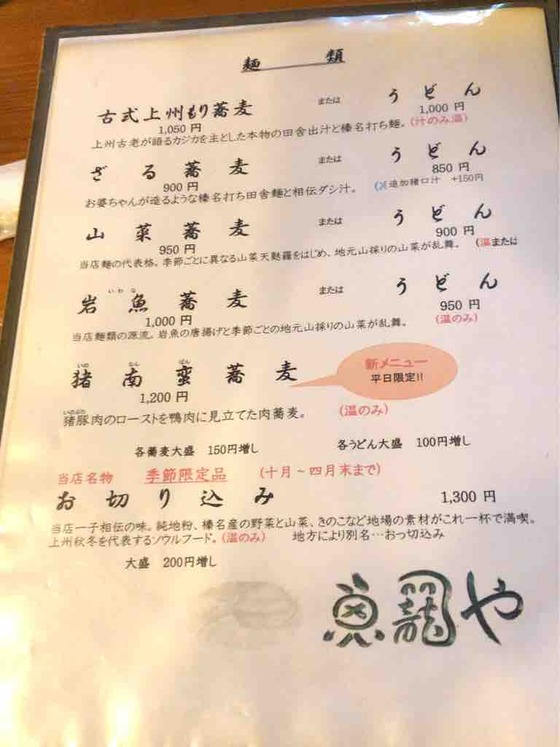 麺　類
古式上州もり蕎麦　または　うどん
1,050 円　1,000 円
上州古老が語るカジカを主とした本物の田舎出汁と榛名打ち麺。(汁のみ温)
ざる蕎麦　または　うどん
900 円　850 円
お婆ちゃんが造るような榛名打ち田舎麺と相伝ダシ汁。　追加猪口汁　+150円
山菜蕎麦　または　うどん
950 円　900 円
当店麺の代表格。季節ごとに異なる山菜天麩羅をはじめ、地元山採りの山菜が乱舞。　(温または
いわな
岩魚蕎麦　または　うどん
1,000 円　950 円
当店麺類の源流。岩魚の唐揚げと季節ごとの地元山採りの山菜が乱舞。　(温のみ)
いの　なん　ばん
猪南蛮蕎麦
新メニュー
平日限定!!
1,200 円
いのぶた
猪豚肉のローストを鴨肉に見立てた肉蕎麦。　(温のみ)
各蕎麦大盛　150円増し　各うどん大盛　100円増し
当店名物　季節限定品　(十月～四月末まで)
お切り込み　1,300 円
当店一子相伝の味。純地粉、榛名産の野菜と山菜、きのこなど地場の素材がこれ一杯で満喫。
上州秋冬を代表するソウルフード。(温のみ)　地方により別名…おっ切込み
大盛　200円増し
魚籠や